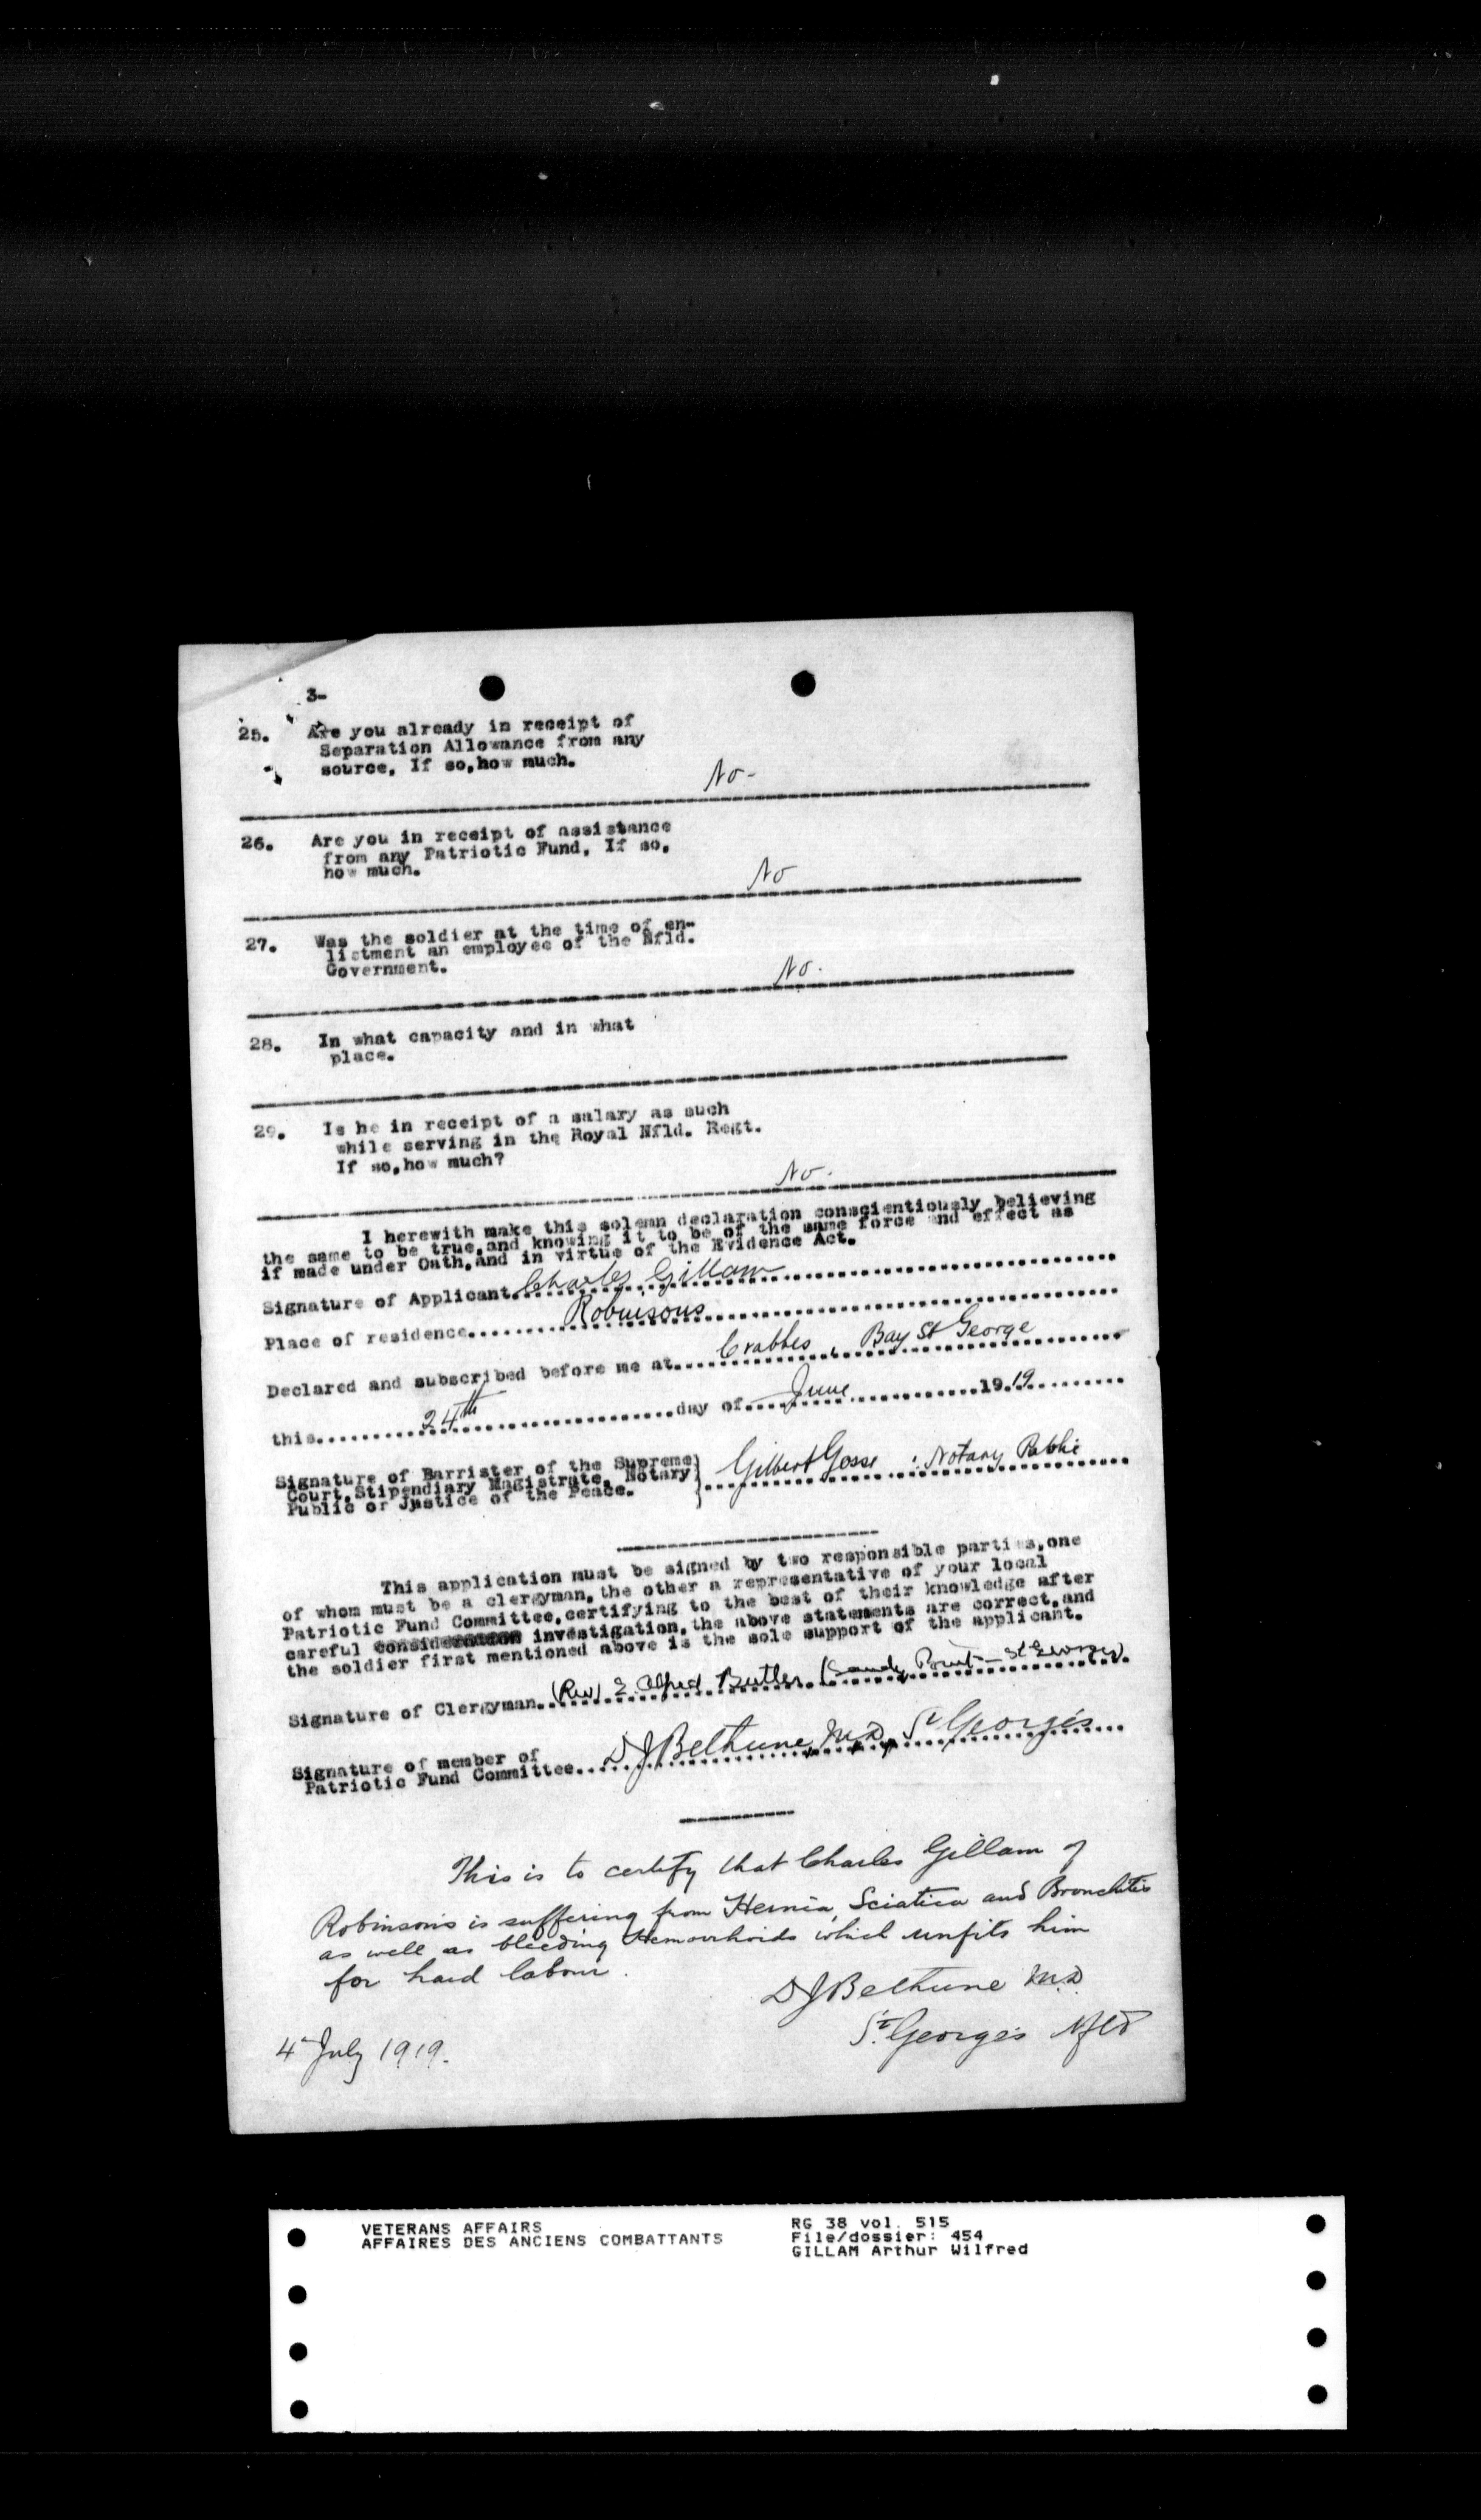 3-
25. Are you already in receipt of
Separation Allowance from any
source. If so,how much.
No-
26. Are you in receipt of assistance
from any Patriotic Fund. If so,
how much.
No
27. Was the soldier at the time of en-
listment an employee of the Nfld.
Government.
No.
28. In what capacity and in what
place.
29. Is he in receipt of a salary as such
while serving in the Royal Nfld. Regt.
If so,how much?
No.
I herewith make this solemn declaration conscientiously believing
the same to be true,and knowing it to be of the same force and effect as
if made under Oath,and in virtue of the Evidence Act.
Signature of Applicant. Charles Gillam
Place of residence. Robinsons
Declared and subscribed before me at. Crabbes, Bay St George
this 24th day of June 1919
Signature of Barrister of the Supreme
Court,Stipendiary Magistrate, Notary
Public or Justice of the Peace.
Gilbert Gosse : Notary Public
This application must be signed by two responsible parties,one
of whom must be a clergyman,the other a representative of your local
Patriotic Fund Committee,certifying to the best of their knowledge after
careful consideration investigation,the above statements are correct,and
the soldier first mentioned above is the sole support of the applicant.
Signature of Clergyman. (Rev) E Alfred Butler (Sandy Point - St Georges)
Signature of member of
Patriotic Fund Committee. D J Bethune, M.D, St Georges
This is to certify that Charles Gillam of
Robinsons is suffering from Hernia, Sciatica and Bronchitis
as well as bleeding Hemorrhoids which unfits him
for hard labour.
D J Bethune M.D
St. Georges Nfld
4 July 1919.
VETERANS AFFAIRS
AFFAIRES DES ANCIENS COMBATTANTS
RG 38 vol. 515
File/dossier: 454
GILLAM Arthur Wilfred